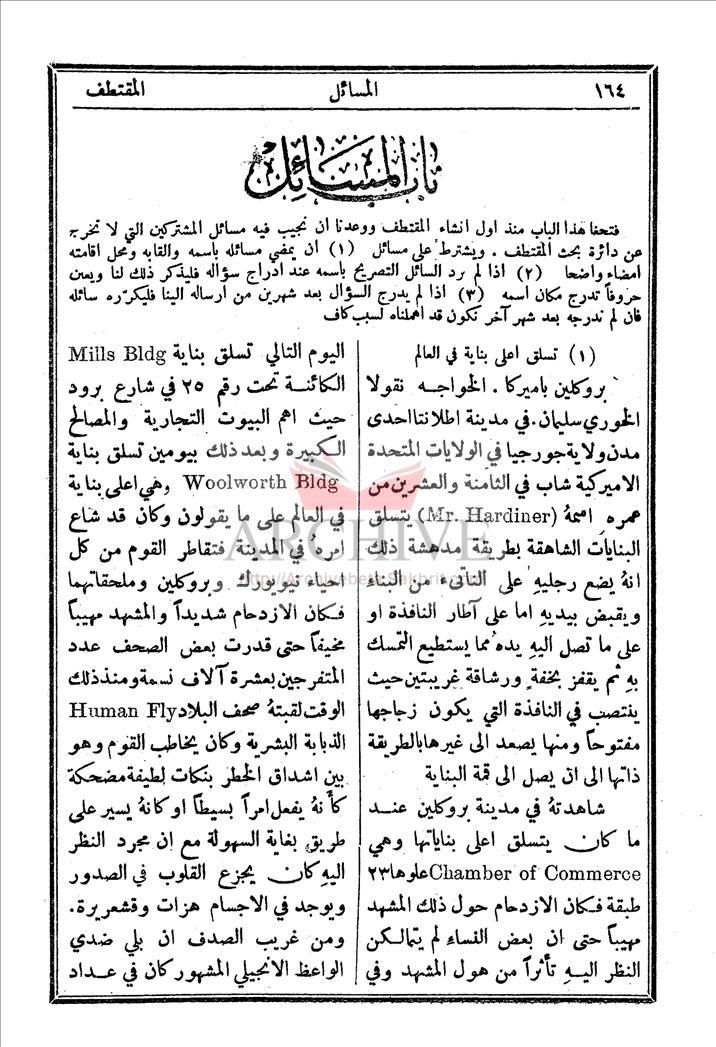 ١٦٤
المسائل
المقتطف
باب المسائل
فتحنا هذا الباب منذ اول انشاء المقتطف ووعدنا ان نجيب فيه مسائل المشتركين التي لا تخرج
عن دائرة بحث المقتطف . ويشترط على مسائل (١) ان يمضي مسائله باسمه والقابه ومحل اقامته
امضاء واضحا (٢) اذا لم يرد السائل التصريح باسمه عند ادراج سؤاله فليذكر ذلك لنا ويعين
حروفاً تدرج مكان اسمه (٣) اذا لم يدرج السؤال بعد شهرين من ارساله الينا فليكرره سائله
فان لم ندرجه بعد شهر آخر نكون قد اهملناه لسبب كاف
(١) تسلق اعلى بناية في العالم
بروكلين باميركا . الخواجه نقولا
الخوري سليمان . في مدينة اطلانتا احدى
مدن ولاية جورجيا في الولايات المتحدة
الاميركية شاب في الثامنة والعشرين من
عمره اسمهُ (Mr. Hardiner) يتسلق
البنايات الشاهقة بطريقة مدهشة ذلك
انهُ يضع رجليهِ على الناتىء من البناء
ويقبض بيديهِ اما على آطار النافذة او
على ما تصل اليهِ يدهُ مما يستطيع التمسك
بهِ ثم يقفز بخفةٍ ورشاقة غريبتين حيث
ينتصب في النافذة التي يكون زجاجها
مفتوحاً ومنها يصعد الى غيرها بالطريقة
ذاتها الى ان يصل الى قمة البناية
شاهدتهُ في مدينة بروكلين عند
ما كان يتسلق اعلى بناياتها وهي
Chamber of Commerce علوها ٢٣
طبقة فكان الازدحام حول ذلك المشهد
مهيباً حتى ان بعض النساء لم يتمالكن
النظر اليهِ تأثراً من هول المشهد وفي
اليوم التالي تسلق بناية Mills Bldg
الكائنة تحت رقم ٢٥ في شارع برود
حيث اهم البيوت التجارية والمصالح
الكبيرة وبعد ذلك بيومين تسلق بناية
Woolworth Bldg وهي اعلى بناية
في العالم على ما يقولون وكان قد شاع
امرهُ في المدينة فتقاطر القوم من كل
احياء نيويورك وبروكلين وملحقاتهما
فكان الازدحام شديداً والمشهد مهيباً
مخيفاً حتى قدرت بعض الصحف عدد
المتفرجين بعشرة آلاف نسمة ومنذ ذلك
الوقت لقبتهُ صحف البلاد Human Fly
الذبابة البشرية وكان يخاطب القوم وهو
بين اشداق الخطر بنكات لطيفة مضحكة
كأنهُ يفعل امراً بسيطاً او كانهُ يسير على
طريقٍ بغاية السهولة مع ان مجرد النظر
اليهِ كان يجزع القلوب في الصدور
ويوجد في الاجسام هزات وقشعريرة .
ومن غريب الصدف ان بلي ضدي
الواعظ الانجيلي المشهور كان في عداد
ARCHIVE